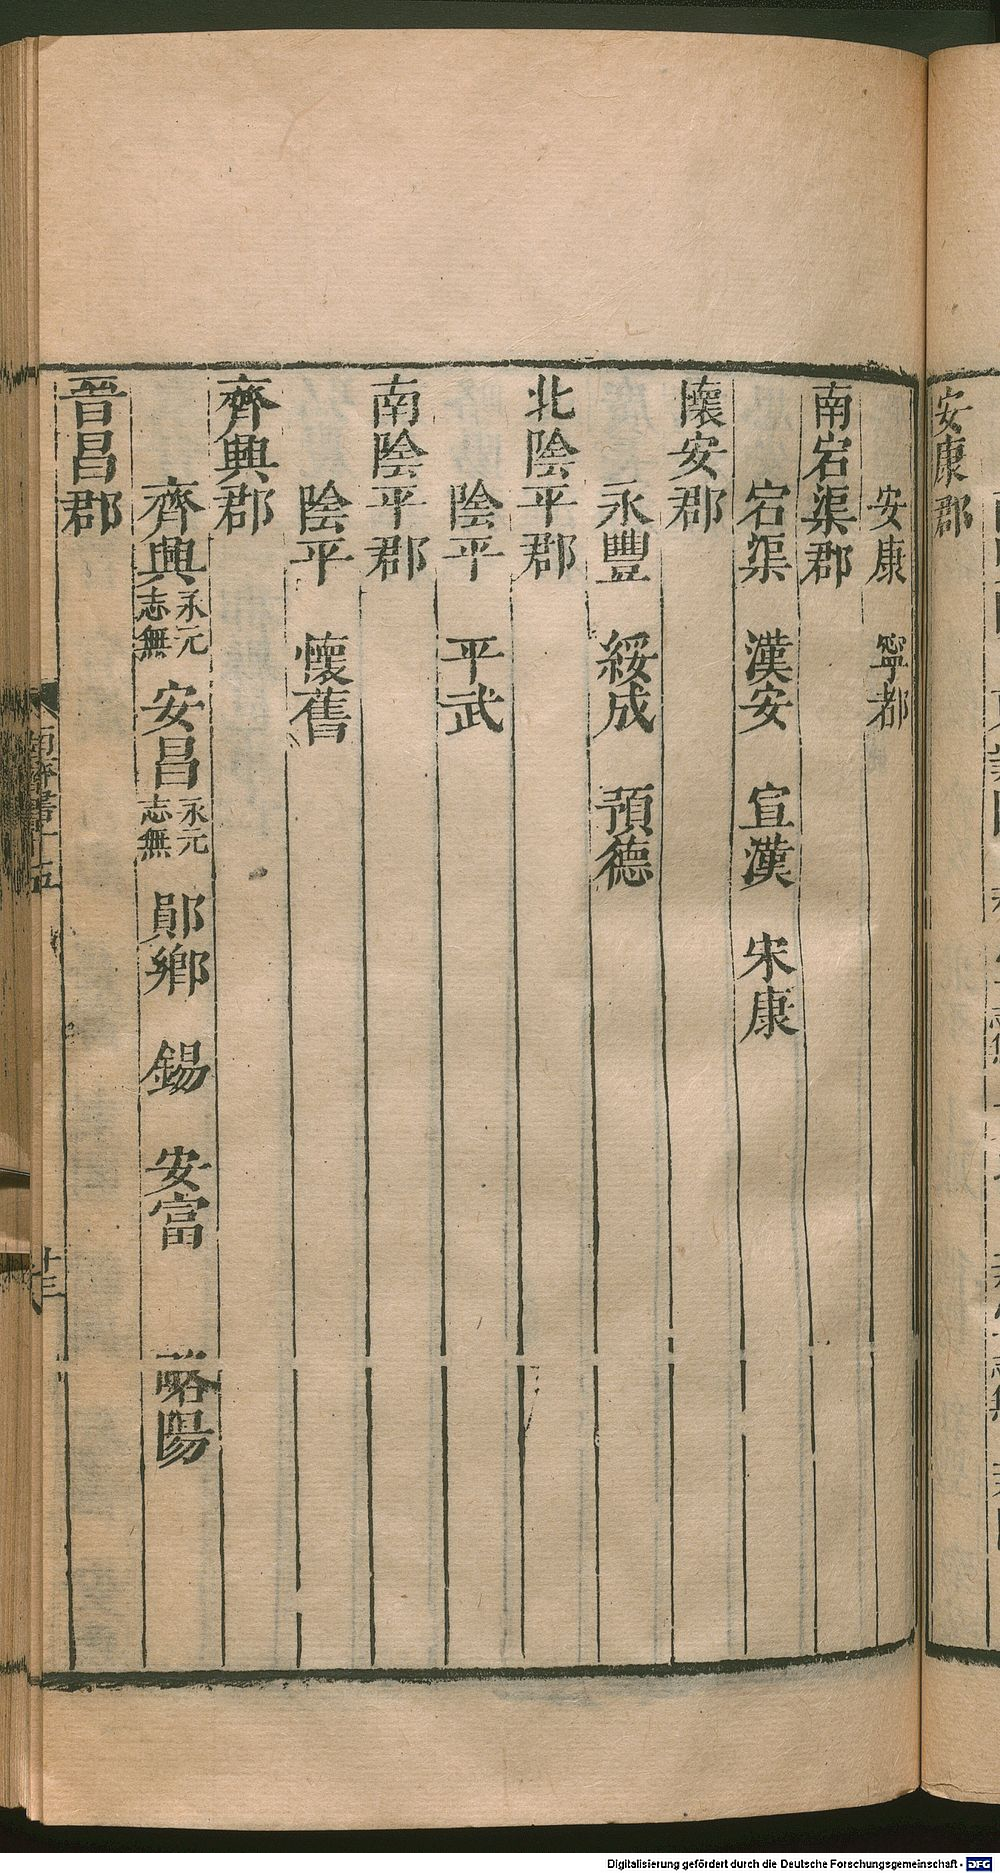 安康郡
安康　寧都
南宕渠郡
宕渠　漢安　宣漢　宋康
懷安郡
永豐　綏成　預德
北陰平郡
陰平　平武
南陰平郡
陰平　懷舊
齊興郡
齊興永元志無　安昌永元志無　鄖鄉　錫　安富　略陽
晉昌郡
南齊書十五
十三
Digitalisierung gefördert durch die Deutsche Forschungsgemeinschaft - DFG